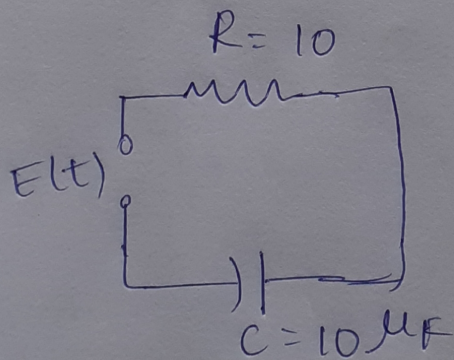 R = 10
E(t)
C = 10 μF